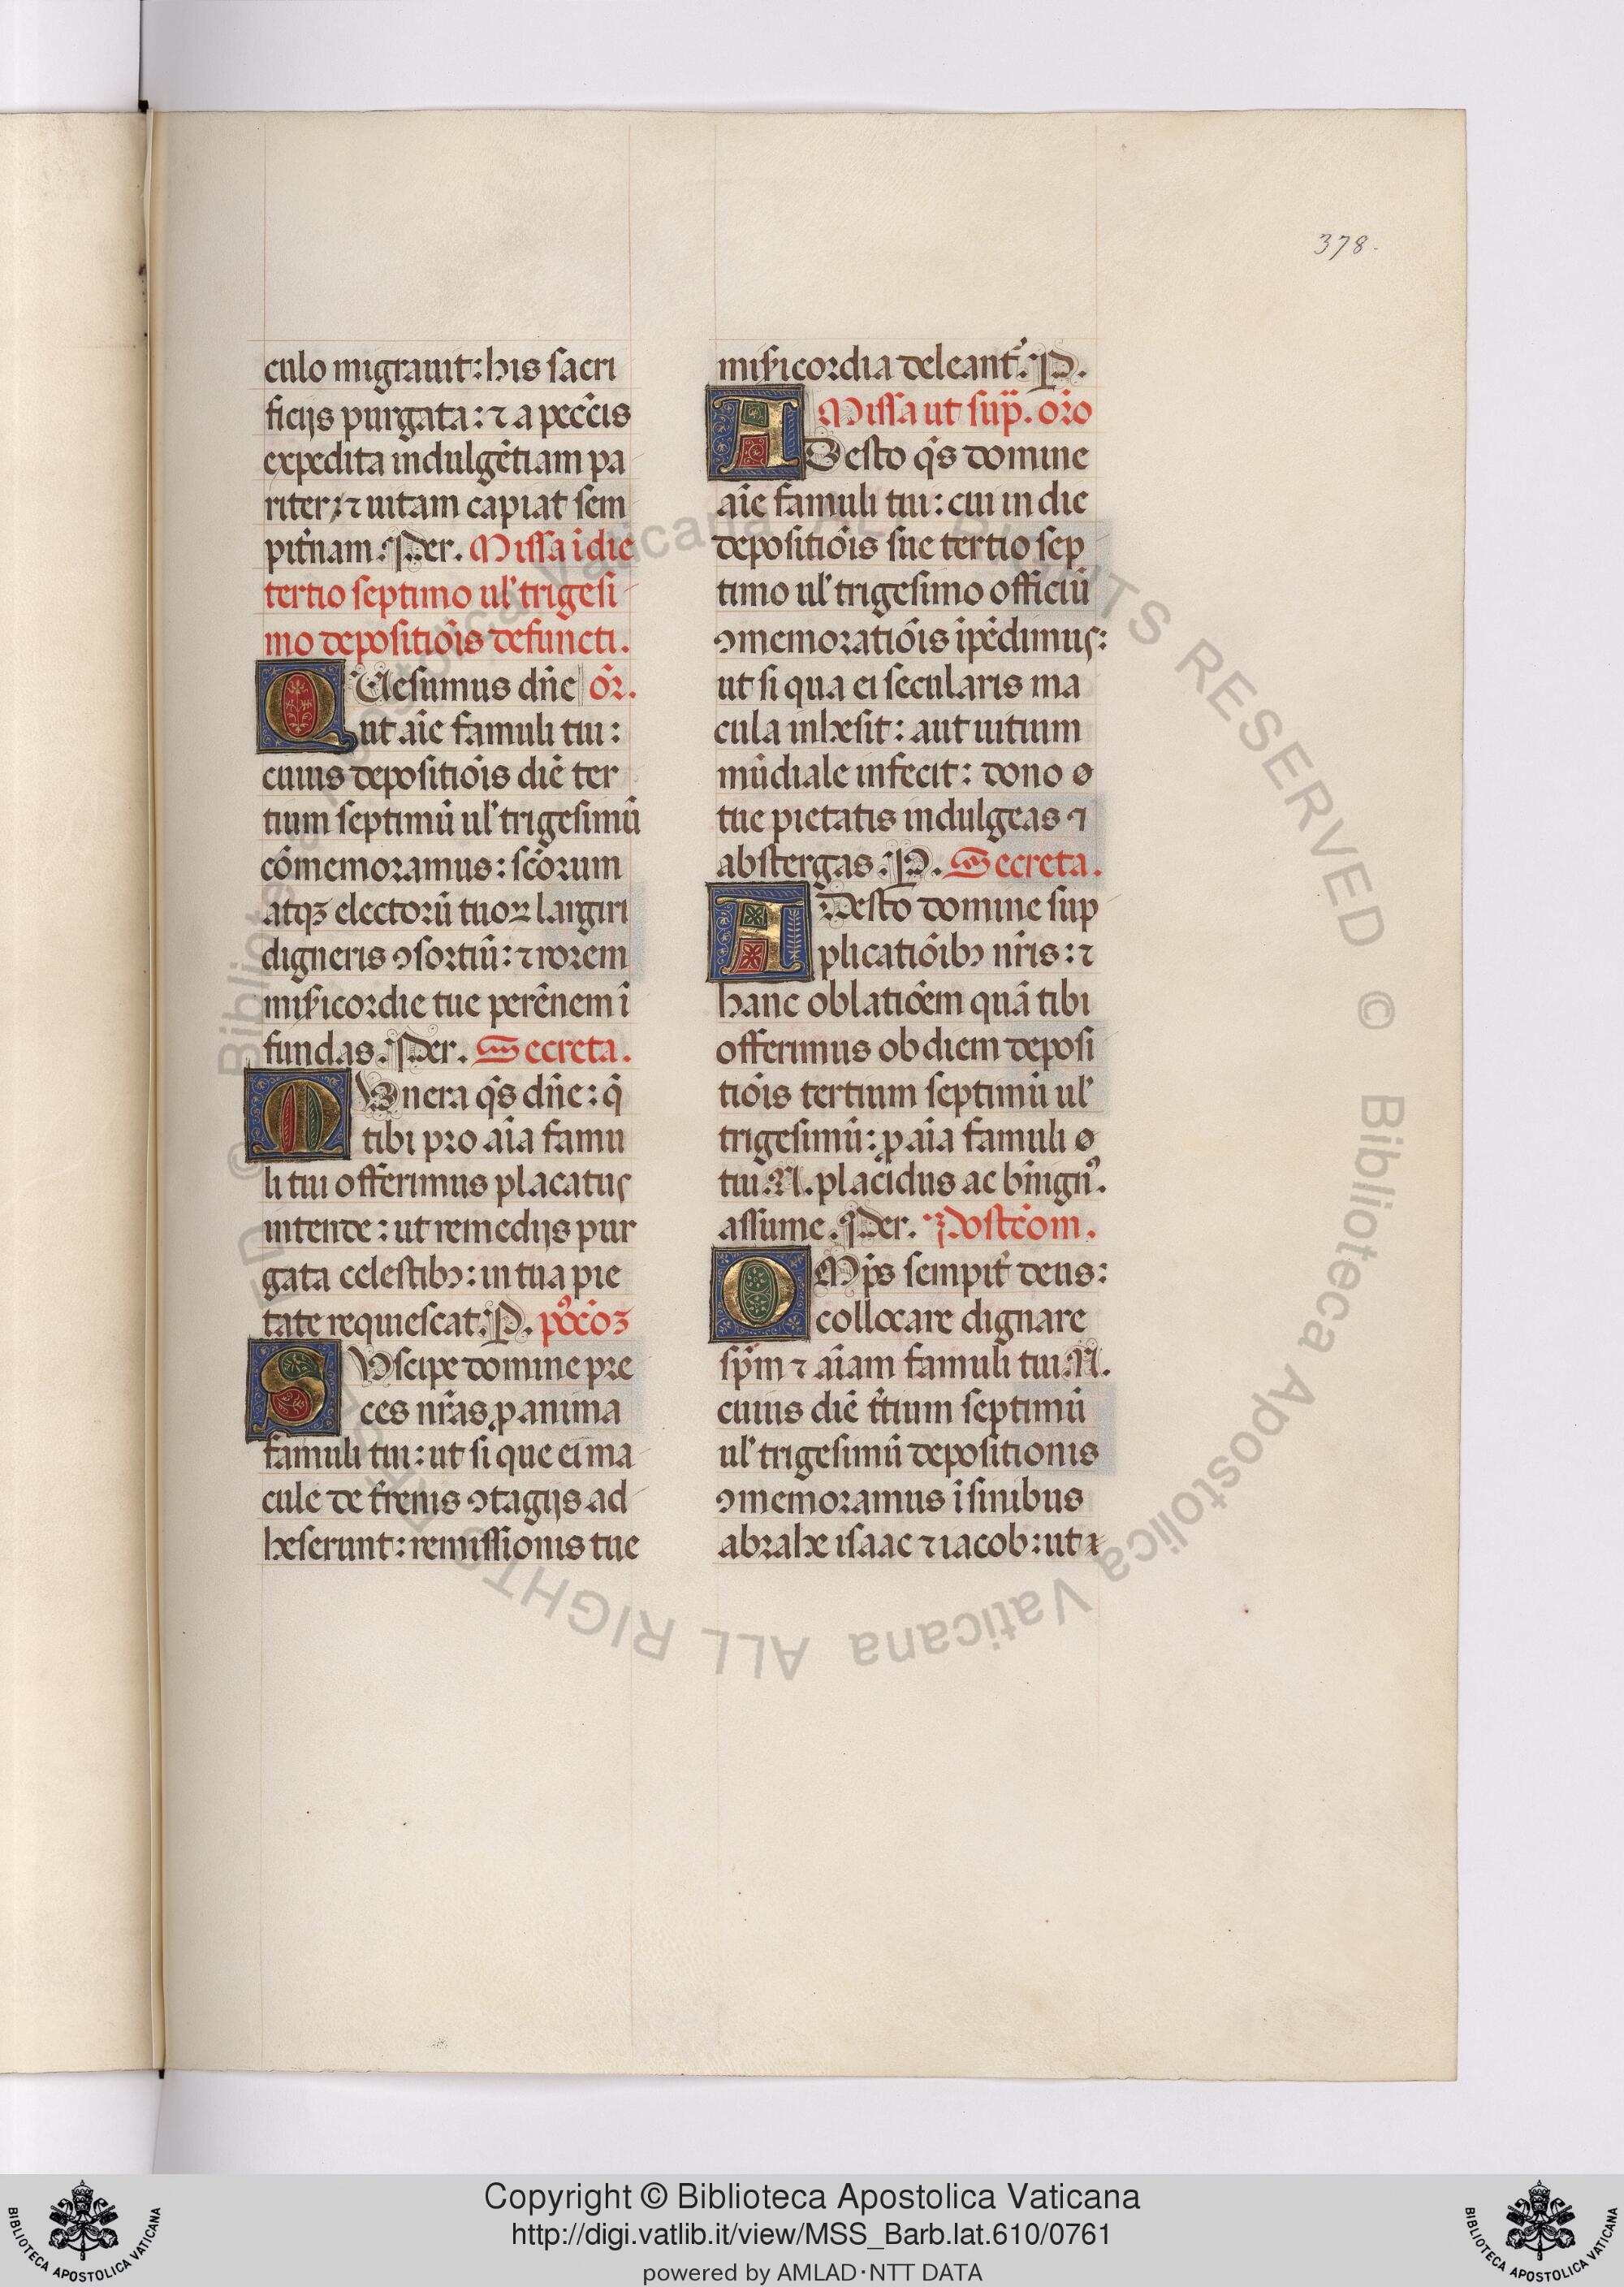 378.
culo migrauit: his sacri
ficijs purgata: ⁊ a pecc̃is
expedita indulgẽtiam pa
riter; ⁊ uitam capiat sem
pit̃nam. Per. Missa ĩ die
tertio septimo ul' trigesi
mo depositiõis defuncti.
QUesumus dñe or̃.
ut aĩe famuli tui:
cuius depositiõis diẽ ter
tium septimũ ul' trigesimũ
cõmemoramus: sc̃orum
atqꝫ electorũ tuoꝝ largiri
digneris ꝯsortiũ: ⁊ rorem
mis̃icordie tue perẽnem ĩ
fundas. Per. Secreta.
MUnera q̃s dñe: q̃
tibi pro aĩa famu
li tui offerimus placatus
intende: ut remedijs pur
gata celestibꝰ: in tua pie
tate requiescat. P. pꝰcõꝫ
SUscipe domine pre
ces nr̃as ꝓ anima
famuli tui: ut si que ei ma
cule de t̃renis ꝯtagijs ad
heserunt: remissionis tue
mis̃icordia deleant᷑. P.
Missa ut sup̃. or̃o
ADesto q̃s domine
aĩe famuli tui: cui in die
depositiõis sue tertio sep
timo ul' trigesimo officiũ
ꝯmemoratiõis ĩpẽdimus:
ut si qua ei secularis ma
cula inhesit: aut uitium
mũdiale infecit: dono
tue pietatis indulgeas ⁊
abstergas. P. Secreta.
ADesto domine sup
plicatiõibꝰ nr̃is: ⁊
hanc oblatiõem quã tibi
offerimus ob diem deposi
tiõis tertium septimũ ul'
trigesimũ: ꝓ aĩa famuli
tui .N. placidus ac bñignꝰ.
assume. Per. Postcõm.
OMp̃s sempit̃ deus:
collocare dignare
sp̃m ⁊ aĩam famuli tui .N.
cuius diẽ t̃tium septimũ
ul' trigesimũ depositionis
ꝯmemoramus ĩ sinibus
abrahe isaac ⁊ iacob: ut
© Biblioteca Apostolica Vaticana ALL RIGHTS RESERVED © Biblioteca Apostolica Vaticana ALL RIGHTS RESERVED
Copyright © Biblioteca Apostolica Vaticana
http://digi.vatlib.it/view/MSS_Barb.lat.610/0761
powered by AMLAD·NTT DATA
BIBLIOTECA APOSTOLICA VATICANA
BIBLIOTECA APOSTOLICA VATICANA